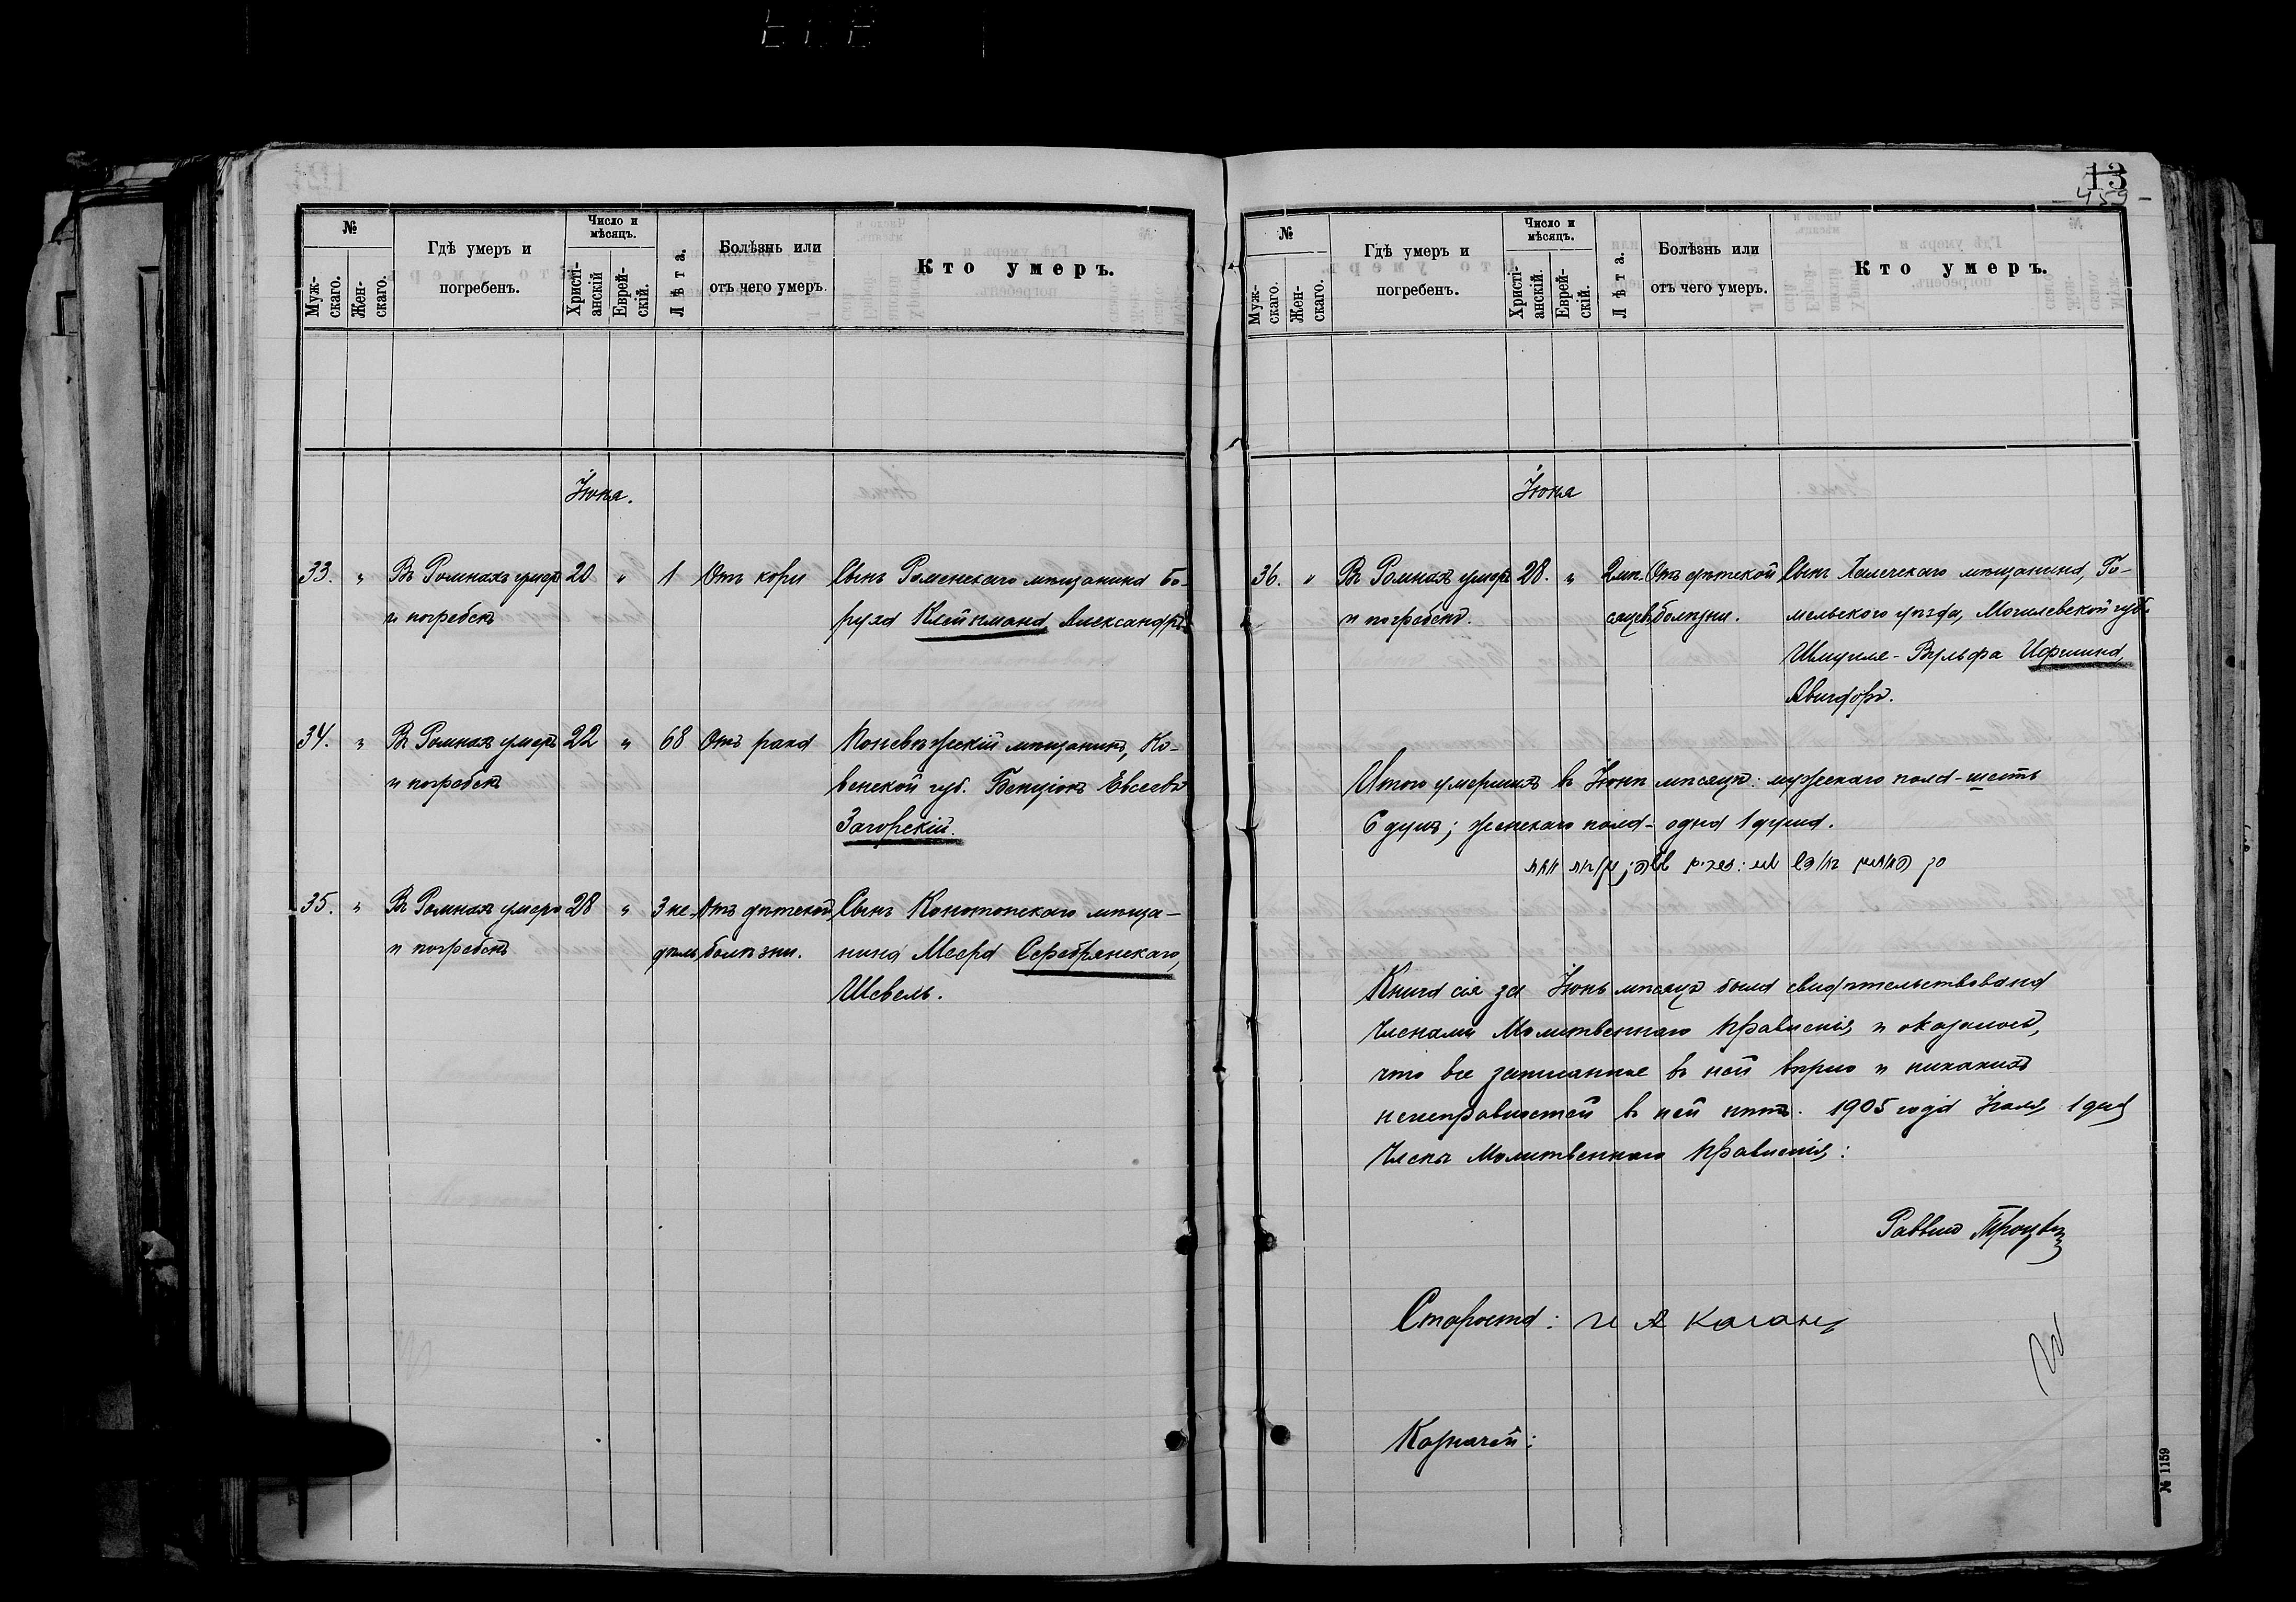 №
Муж-
скаго.
Жен-
скаго.
Гдѣ умеръ и
погребенъ.
Число и
мѣсяцъ.
Христі-
анскій
Еврей-
скій.
Лѣта.
Болѣзнь или
отъ чего умеръ.
Кто умеръ.
Іюня.
33. " Въ Ромнахъ умеръ 20 " 1 Отъ кори Сынъ Роменскаго мѣщанина Бо-
и погребенъ руха Клейнмана, Александръ
34. " Въ Ромнахъ умеръ 22 " 68 Отъ рака Поневѣжскій мѣщанинъ, Ко-
и погребенъ венской губ. Бенціонъ Евсеевъ
Загорскій.
35. " Въ Ромнахъ умеръ 28 " 3 не- Отъ дѣтской Сынъ Конотопскаго мѣща-
и погребенъ дѣль болѣзни. нина Меера Серебрянскаго,
Шевель.
13
459
№
Муж-
скаго.
Жен-
скаго.
Гдѣ умеръ и
погребенъ.
Число и
мѣсяцъ.
Христі-
анскій.
Еврей-
скій.
Лѣта.
Болѣзнь или
отъ чего умеръ.
Кто умеръ.
Іюня
36. " Въ Ромнахъ умеръ 28. " 2 мѣ- Отъ дѣтской Сынъ мѣщанина, Го-
и погребенъ. сяцевъ болѣзни. мельскаго уѣзда, Могилевской губ.
Шмуиле-Вульфа
Авигдоръ.
Итого умершихъ въ Іюнѣ мѣсяцѣ: мужескаго пола - шесть
6 душъ; женскаго пола - одна 1 душа.
Книга сія за Іюнь мѣсяцъ была свидѣтельствована
Членами Молитвеннаго Правленія и оказалось,
что все записанное въ ней вѣрно и никакихъ
неисправностей въ ней нѣтъ. 1905 года Іюля 1 дня
Члены Молитвеннаго Правленія:
Раввинъ
Староста: И А Каганъ
Казначей:
№ 1159